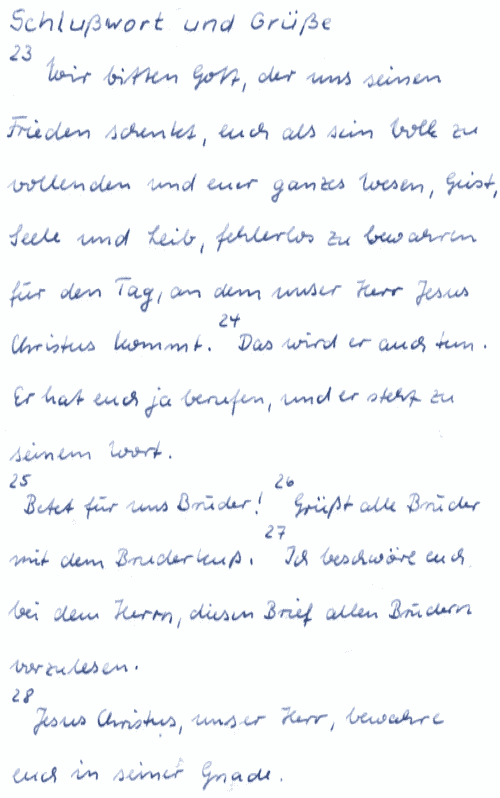 Schlußwort und Grüße
23 Wir bitten Gott, der uns seinen
Frieden schenkt, euch als sein Volk zu
vollenden und euer ganzes Wesen, Geist,
Seele und Leib, fehlerlos zu bewahren
für den Tag, an dem unser Herr Jesus
Christus kommt. 24 Das wird er auch tun.
Er hat euch ja berufen, und er steht zu
seinem Wort.
25 Betet für uns Brüder! 26 Grüßt alle Brüder
mit dem Bruderkuß. 27 Ich beschwöre euch
bei dem Herrn, diesen Brief allen Brüdern
vorzulesen.
28 Jesus Christus, unser Herr, bewahre
euch in seiner Gnade.